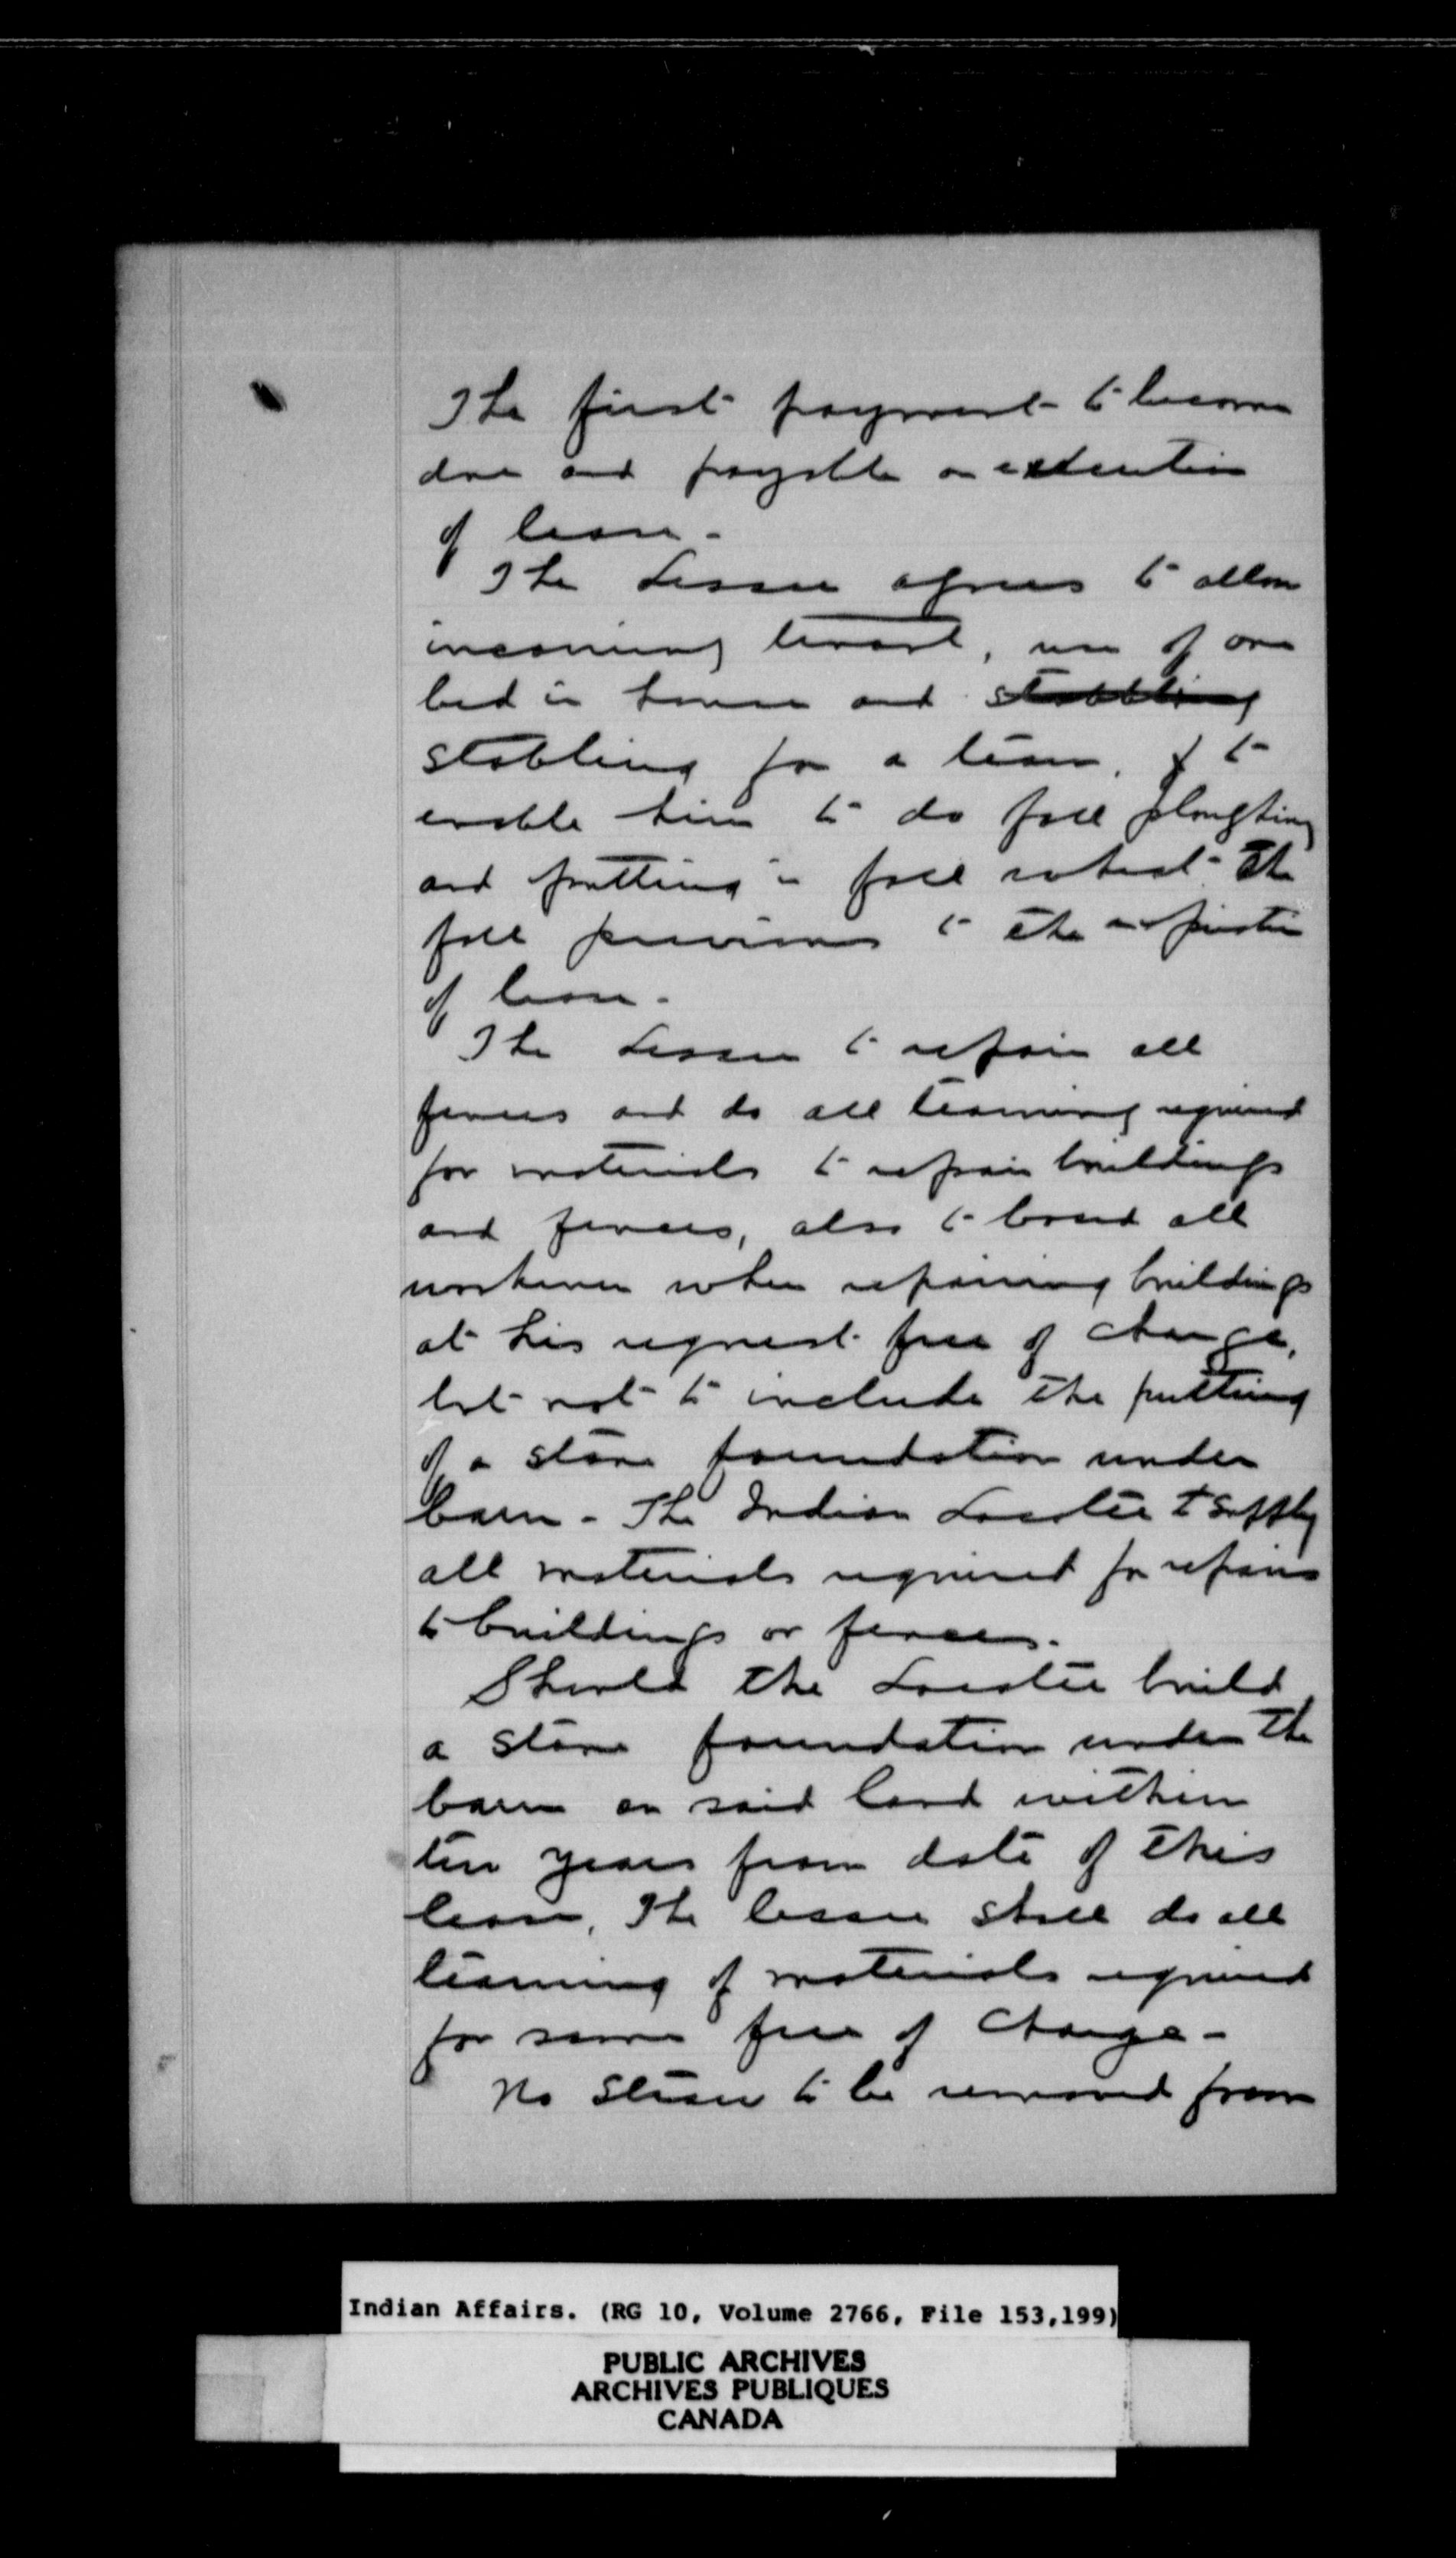 The first payment to become
due and payable on execution
of lease.
The Lessee agrees to allow
incoming tenant, use of one
bed in house and stabbling
stabling for a team, & to
enable him to do fall ploughing
and putting in fall wheat the
fall previous to the expiration
of lease.
The Lessee to repair all
fences and do all teaming required
for materials to repair buildings
and fences, also to board all
workmen when repairing buildings
at his request free of charge,
but not to include the putting
of a stone foundation under
barn - The Indian Locatee to supply
all materials required for repairs
to buildings or fences.
Should the Locatee build
a stone foundation under the
barn on said land within
ten years from date of this
lease, The lessee shall do all
teaming of materials required
for same free of charge -
No straw to be removed from
Indian Affairs. (RG 10, Volume 2766, File 153,199)
PUBLIC ARCHIVES
ARCHIVES PUBLIQUES
CANADA